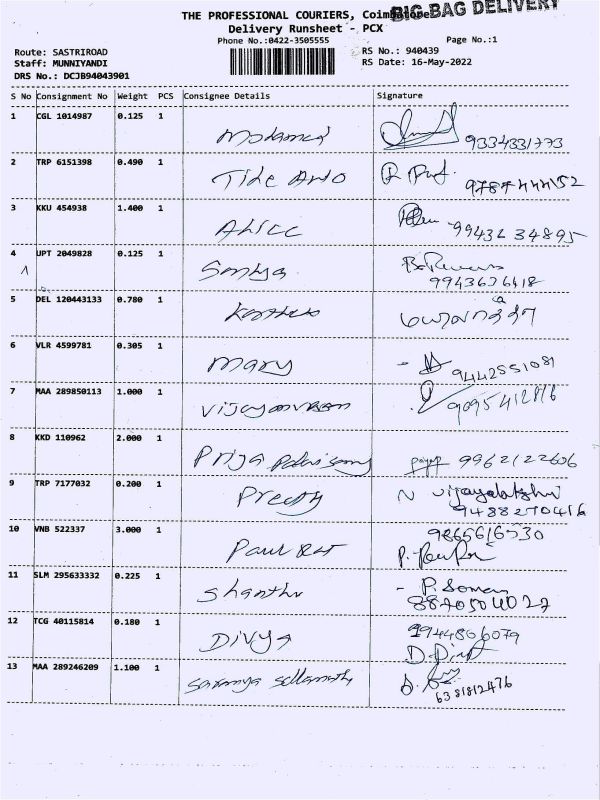 BIG BAG DELIVERY
THE PROFESSIONAL COURIERS, Coimbatore
Delivery Runsheet - PCX
Phone No.:0422-3505555
Page No.:1
Route: SASTRIROAD
Staff: MUNNIYANDI
DRS No.: DCJB94043901
RS No.: 940439
RS Date: 16-May-2022
S No Consignment No Weight PCS Consignee Details Signature
1 CGL 1014987 0.125 1 Mohamed
2 TRP 6151398 0.490 1
3 KKU 454938 1.400 1 Alice 99432 34895
4 UPT 2049828 0.125 1 Soniya
9943626418
5 DEL 120443133 0.780 1
6 VLR 4599781 0.305 1 Mary 9442551081
7 MAA 289850113 1.000 1 9095412816
8 KKD 110962 2.000 1 Priya Palanisamy 9962122606
9 TRP 7177032 0.200 1 Preethy N vijayalakshmi
9488270416
10 VNB 522337 3.000 1
11 SLM 295633332 0.225 1 Shanthi P. Soman
8870504027
12 TCG 40115814 0.180 1 Divya 9944806079
13 MAA 289246209 1.100 1 Saranya
6381812476